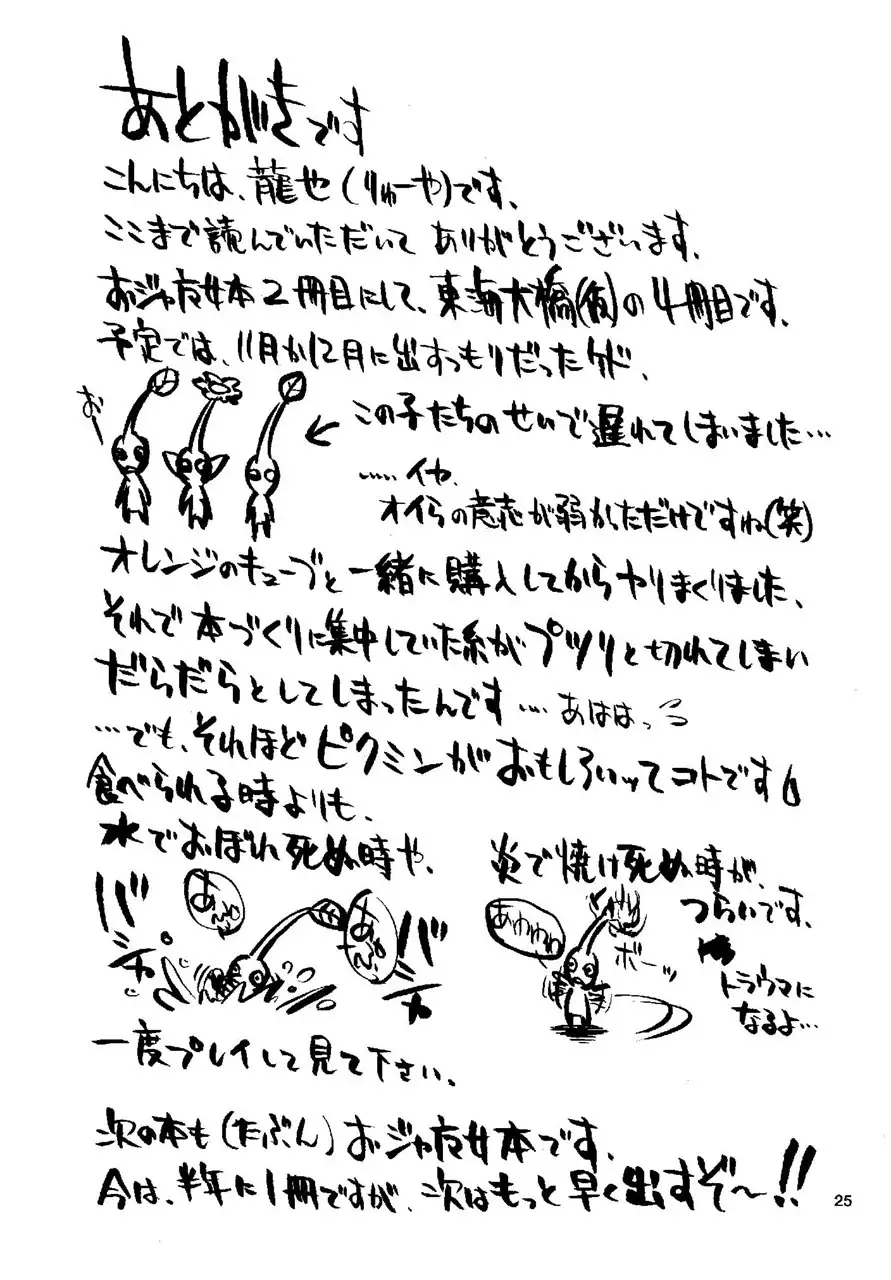 あとがきです
こんにちは、龍也(りゅーや)です、
ここまで読んでいただいて ありがとうございます、
おジャ魔女本2冊目にして、東海大橋(仮)の4冊目です、
予定では、11月か12月に出すつもりだったケド、
おー
この子たちのせいで遅れてしまいました…
……イヤ、
オイらの意志が弱かっただけですね(笑)
オレンジのキューブと一緒に購入してからヤりまくりました、
それで本づくりに集中していた糸がプツリと切れてしまい
だらだらとしてしまったんです…. あははっ
…でも、それほどピクミンがおもしろいッてコトです
食べられる時よりも、
水でおぼれ死ぬ時や、
炎で焼け死ぬ時が、
つらいです、
バシャ
あ
あ
バシャ
あわわわ
ボーッ
トラウマに
なるよ…
一度プレイして見て下さい、
次の本も(たぶん)おジャ魔女本です、
今は、半年に1冊ですが、次はもっと早く出すぞ～!!
25